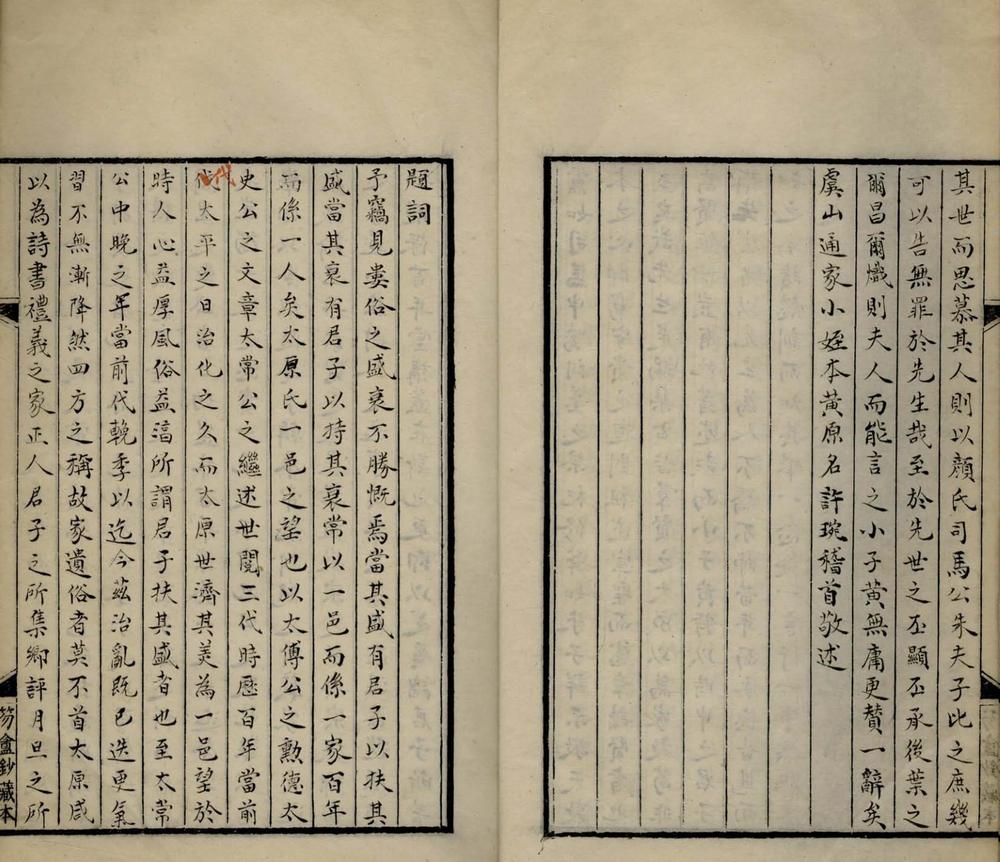 其世而思慕其人則以顏氏司馬公朱夫子此之庶幾
可以告無罪於先生哉至於先世之丕顯丕承後葉之
爾昌爾熾則夫人而能言之小子黃無庸更贊一辭矣
虞山通家小姪本黃原名許琬稽首敬述
題詞
予竊見婁俗之盛衰不勝慨焉當其盛有君子以扶其
盛當其衰有君子以持其衰常以一邑而係一家百年
而係一人矣太原氏一邑之望也以太傅公之勲德太
史公之文章太常公之繼述世閱三代時歷百年當前
代太平之日治化之久而太原世濟其美為一邑望於
時人心益厚風俗益淳所謂君子扶其盛者也至太常
公中晚之年當前代輓季以迄今茲治亂旣已迭更氣
習不無漸降然四方之稱故家遺俗者莫不首太原咸
以為詩書禮義之家正人君子之所集鄉評月旦之所
笏盦鈔藏本